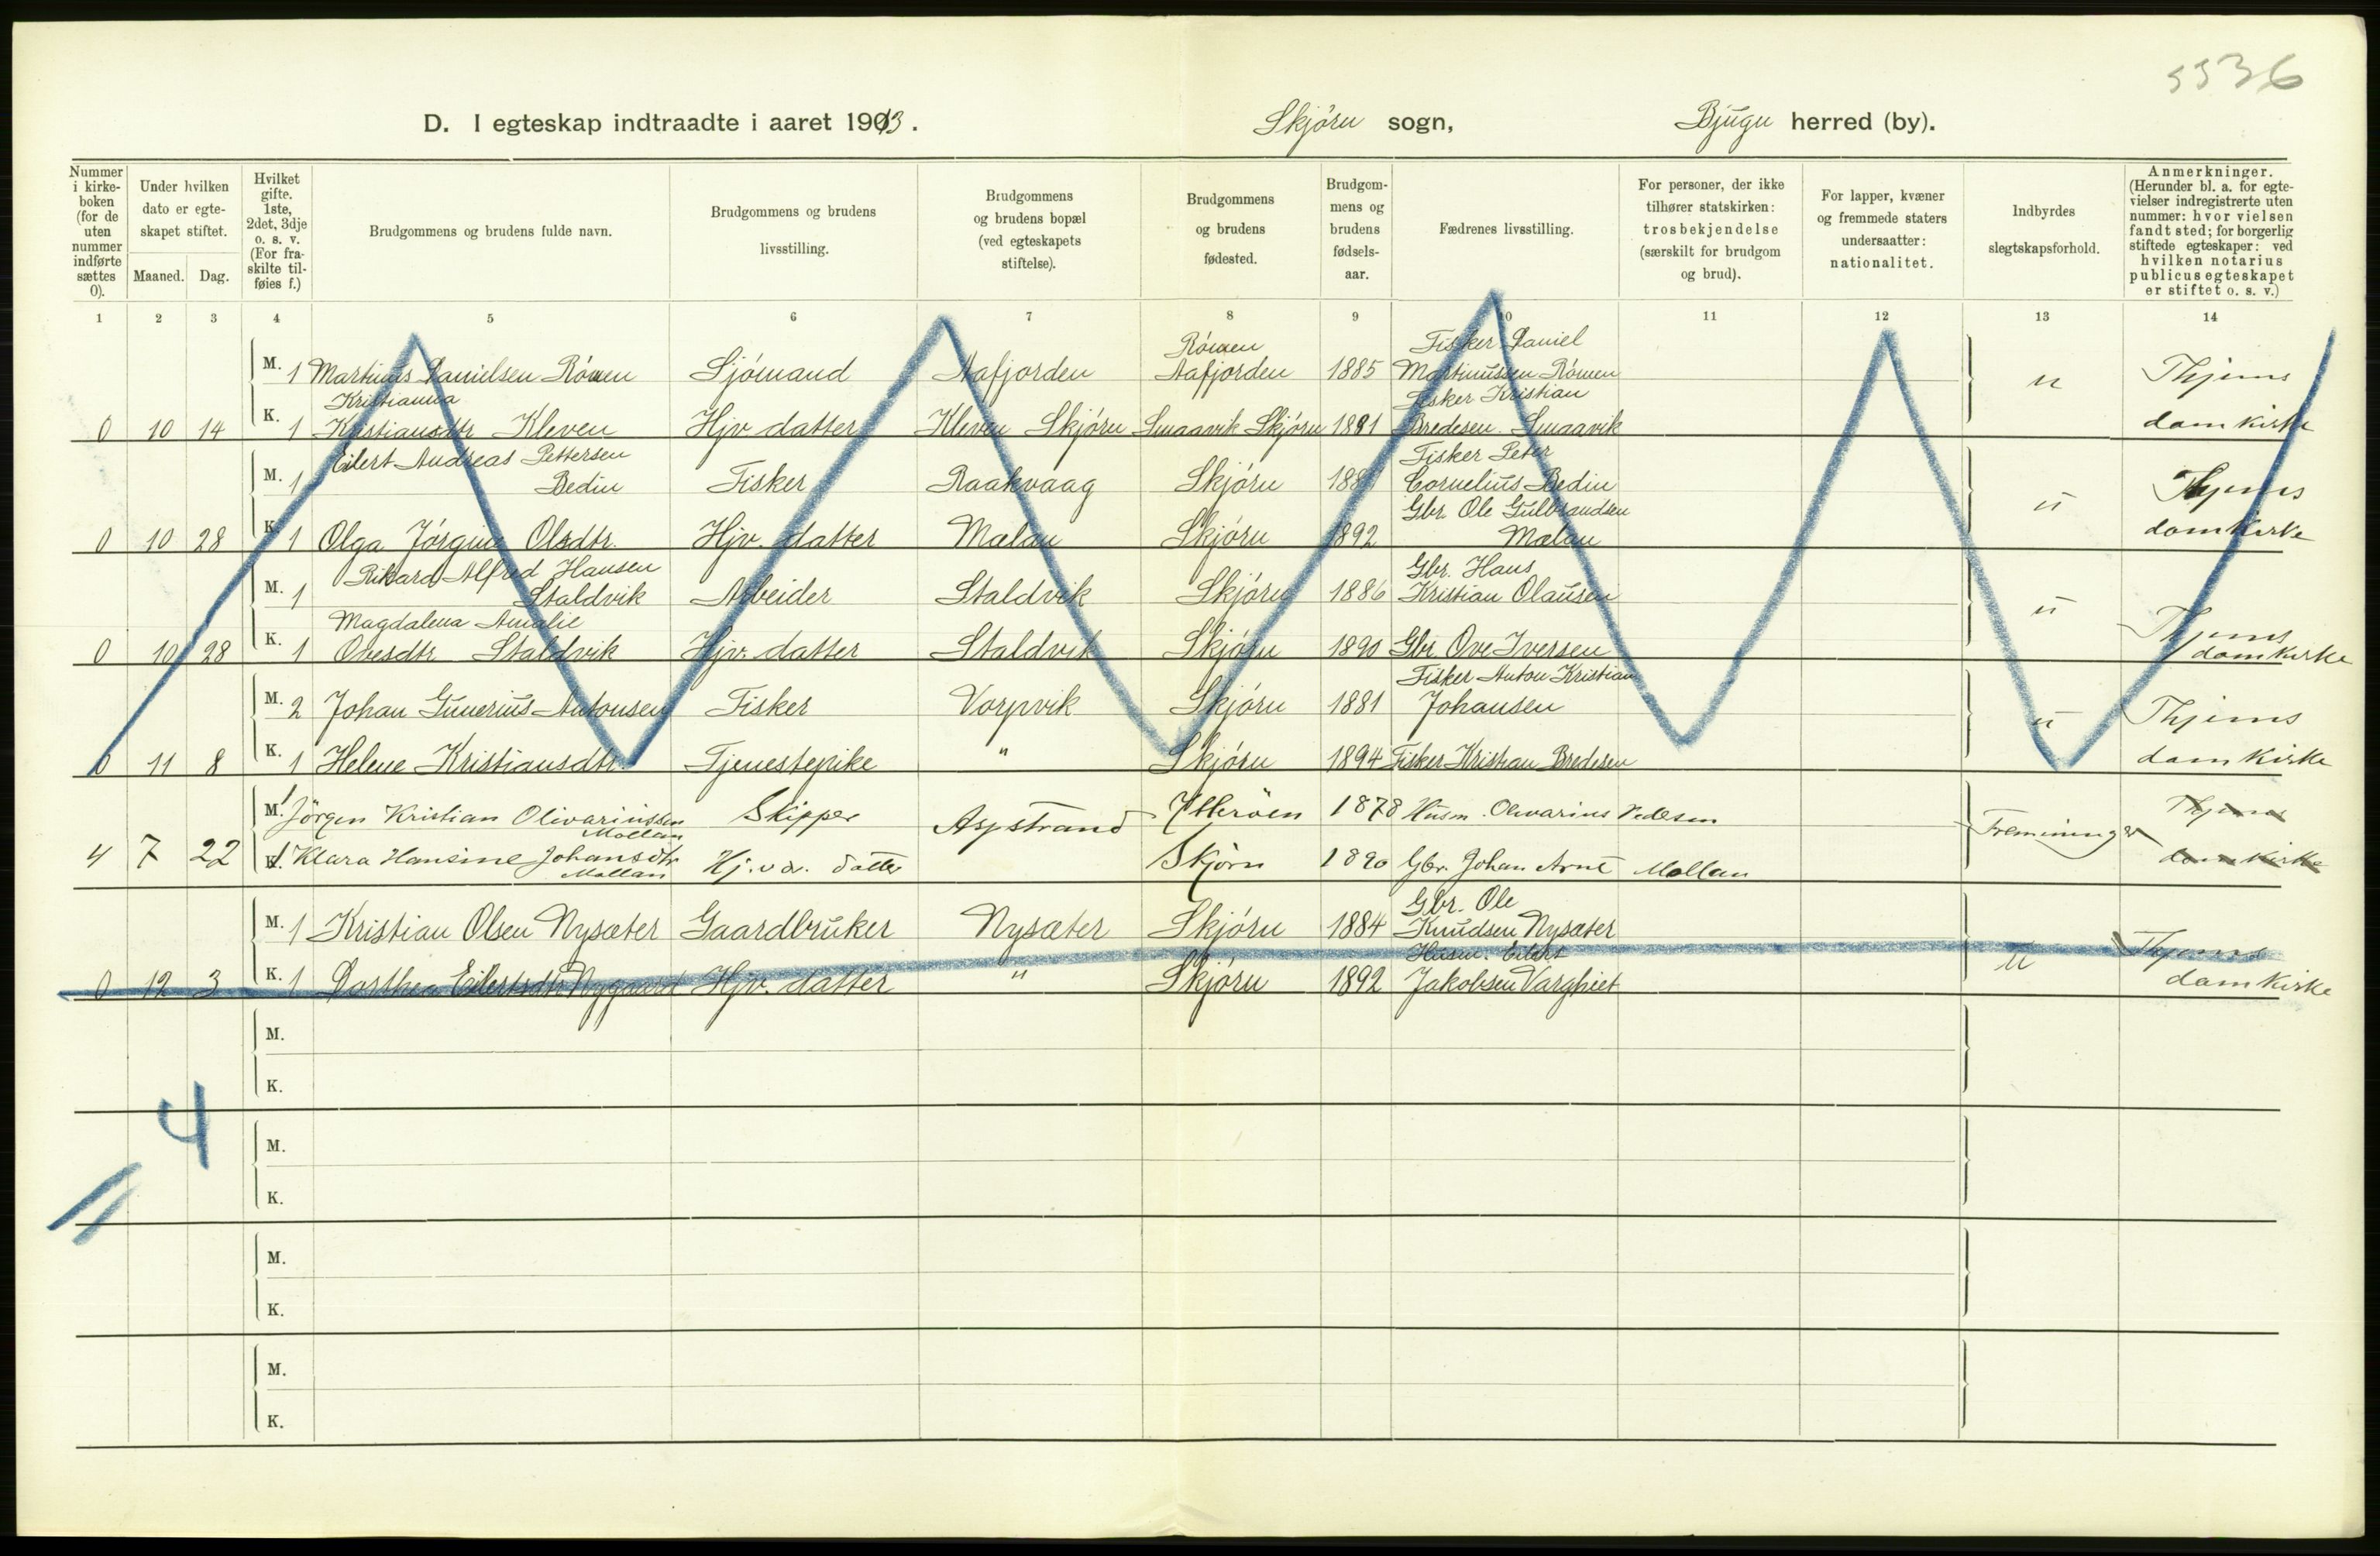 5536
D. I egteskap indtraadte i aaret 1913. Skjörn sogn, Bjugn herred (by).
Nummer i kirke-boken (for de uten nummer indførte sættes 0).
Under hvilken dato er egte-skapet stiftet.
Maaned. Dag.
Hvilket gifte. 1ste, 2det, 3dje o. s. v. (For fra-skilte til-føies f.)
Brudgommens og brudens fulde navn.
Brudgommens og brudens livsstilling.
Brudgommens og brudens bopæl (ved egteskapets stiftelse).
Brudgommens og brudens fødested.
Brudgom-mens og brudens fødsels-aar.
Fædrenes livsstilling.
For personer, der ikke tilhører statskirken: trosbekjendelse (særskilt for brudgom og brud).
For lapper, kvæner og fremmede staters undersaatter: nationalitet.
Indbyrdes slegtskapsforhold.
Anmerkninger. (Herunder bl. a. for egte-vielser indregistrerte uten nummer: hvor vielsen fandt sted; for borgerlig stiftede egteskaper: ved hvilken notarius publicus egteskapet er stiftet o. s. v.)
1 2 3 4 5 6 7 8 9 10 11 12 13 14
M. 1 Martinus Danielsen Römen Sjömand Aafjorden Römen Aafjorden 1885 Fisker Daniel Martinussen Römen u Thjems
0 10 14 K. 1 Kristianna Kristiansdtr Kleven Hjv. datter Kleven Skjörn Smaavik Skjörn 1891 Fisker Kristian Bredesen Smaavik domkirke
M. 1 Eilert Andreas Pettersen Bediu Fisker Raakvaag Skjörn 188 Fisker Peter Cornelius Bediu u Thjems
0 10 28 K. 1 Olga Jörgine Olsdtr. Hjv. datter Mælan Skjörn 1892 Gbr. Ole Gulbrandsen Mælan domkirke
M. 1 Rikard Alfred Hansen Staldvik Arbeider Staldvik Skjörn 1886 Gbr. Hans Kristian Olausen u
0 10 28 K. 1 Magdalena Amalie Ovesdtr Staldvik Hjv. datter Staldvik Skjörn 1890 Gbr. Ove Iversen Thjems domkirke
M. 2 Johan Gunerius Antonsen Fisker Vorpvik Skjörn 1881 Fisker Anton Kristian Johansen u Thjems
0 11 8 K. 1 Helene Kristiansdtr. Tjenestepike " Skjörn 1894 Fisker Kristian Bredesen domkirke
M. 1 Jörgen Kristian Olivariussen Mollan Skipper Aspstrand Ytteröen 1878 Husm. Olivarius Pedersen Fremmninger Thjems
4 7 22 K. 1 Klara Hansine Johansdtr Mollan Hj. v. d. datter Skjörn 1890 Gbr. Johan Arnt Mollan domkirke
M. 1 Kristian Olsen Nysæter Gaardbruker Nysæter Skjörn 1884 Gbr. Ole Knudsen Nysæter u Thjems
0 12 3 K. 1 Dorthea Eilertsdtr Nygaard Hjv. datter " Skjörn 1892 Husm. Eilert Jakobsen Varghiet domkirke
M.
K.
4
M.
K.
M.
K.
M.
K.